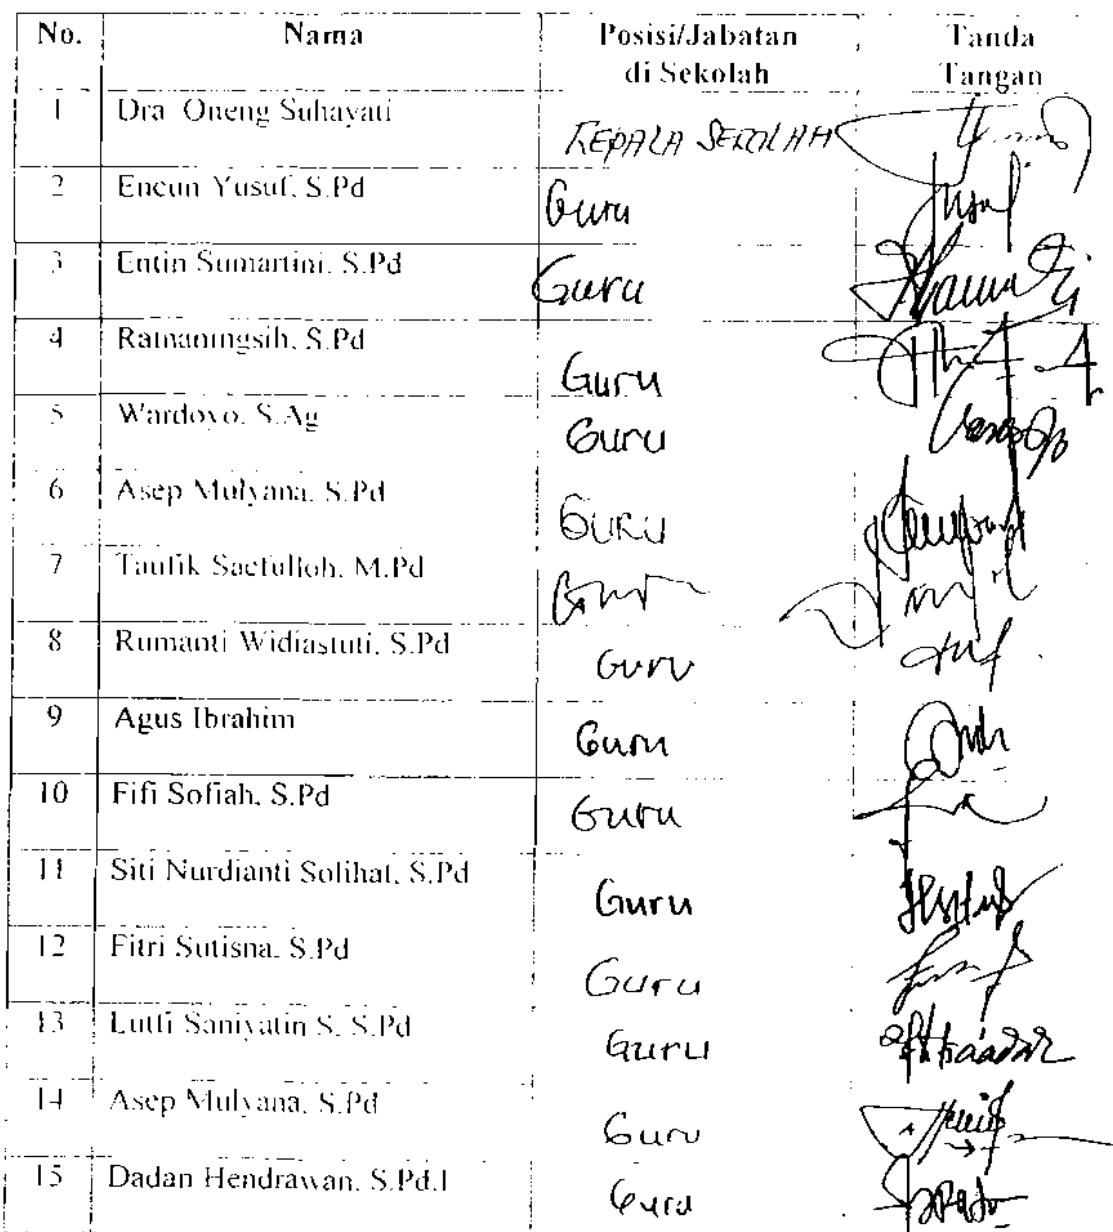 No. Nama Posisi/Jabatan di Sekolah Tanda Tangan
1 Dra Oneng Suhayati KEPALA SEKOLAH
2 Encun Yusuf, S.Pd Guru
3 Entin Sumartini, S.Pd Guru
4 Ratnaningsih, S.Pd Guru
5 Wardoyo, S.Ag Guru
6 Asep Mulyana, S.Pd GURU
7 Taufik Saefulloh, M.Pd
8 Rumanti Widiastuti, S.Pd Guru
9 Agus Ibrahim Guru
10 Fifi Sofiah, S.Pd Guru
11 Siti Nurdianti Solihat, S.Pd Guru
12 Fitri Sutisna, S.Pd Guru
13 Lutfi Saniyatin S, S.Pd Guru
14 Asep Mulyana, S.Pd Guru
15 Dadan Hendrawan, S.Pd.I Guru